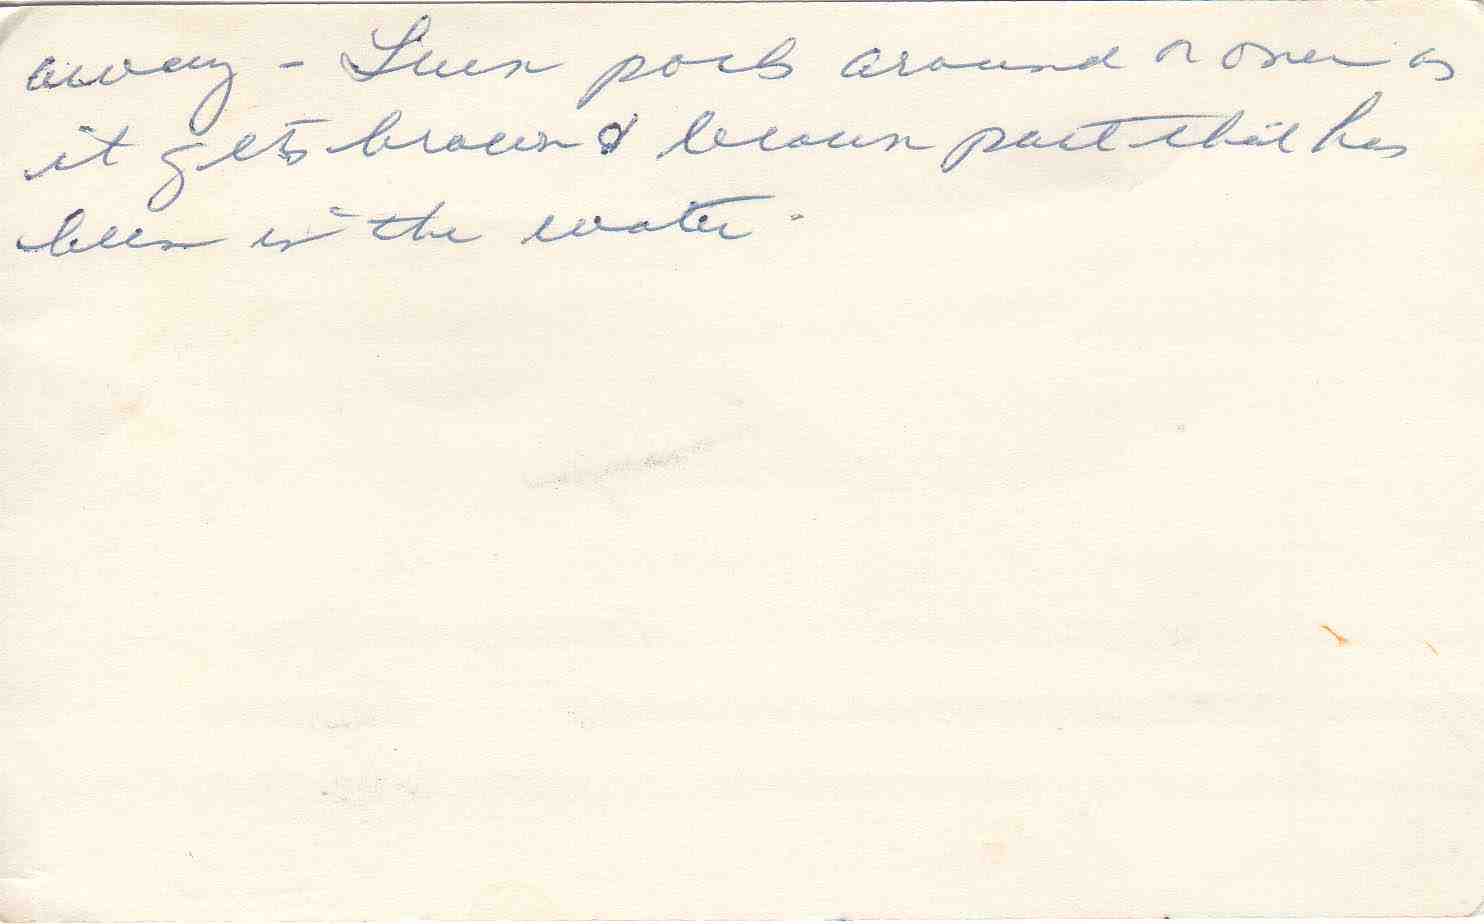 away - Turn pork around or over as
it gets brown & brown part that has
been in the water.